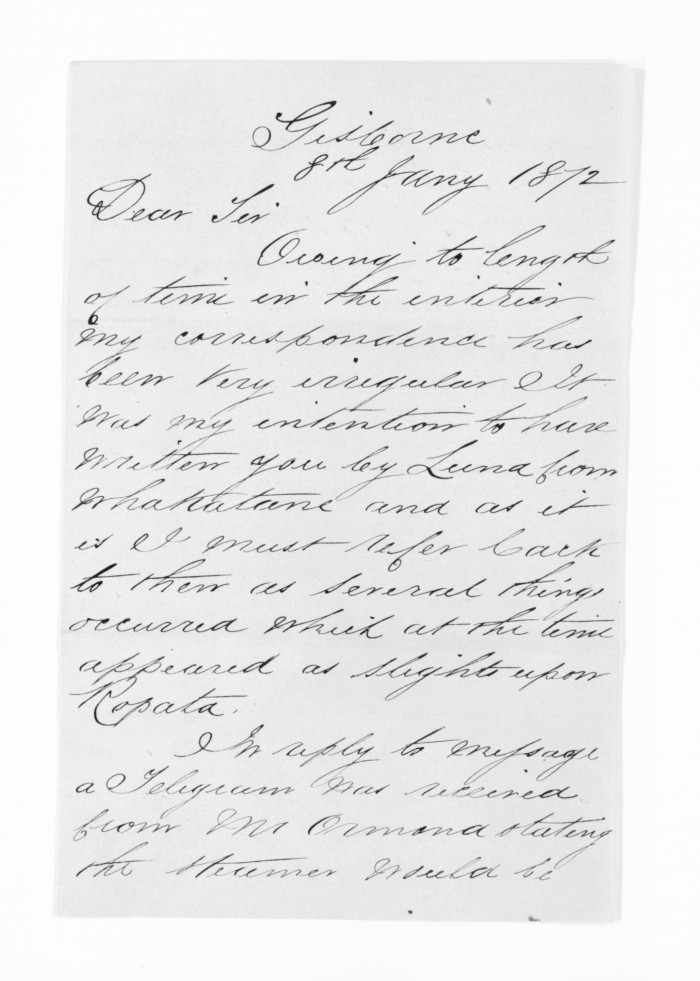 Gisborne
8th Jany 1872
Dear Sir
Owing to length
of time in the interior
my correspondence has
been very irregular It
was my intention to have
written you by Luna from
Whakatane and as it
is I must refer back
to then as several things
occurred which at the time
appeared as slights upon
Ropata.
In reply to message
a Telegram was received
from Mr Ormond stating
the steamer would be